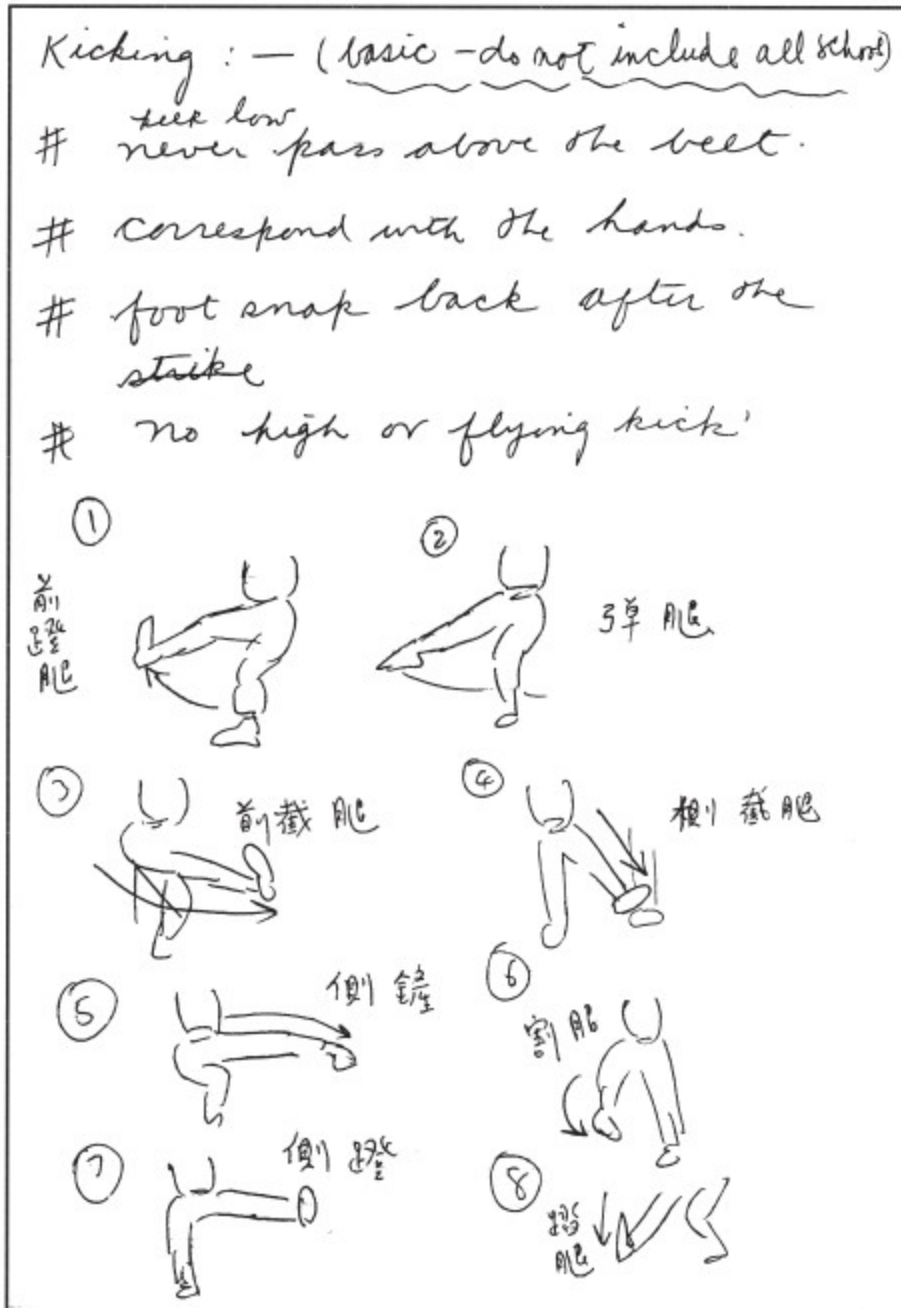 Kicking : — (basic - do not include all school)
keep low
# never pass above the belt.
# correspond with the hands.
# foot snap back after the
strike
# no high or flying kick'
①
②
前
蹬
腿
弹腿
③
④
前截腿
側截腿
⑤
側鏟
⑥
割腿
⑦
側蹬
⑧
踏
腿